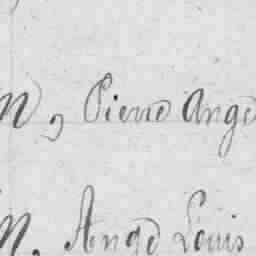 n, Pierre Ange
n. Ange Louis